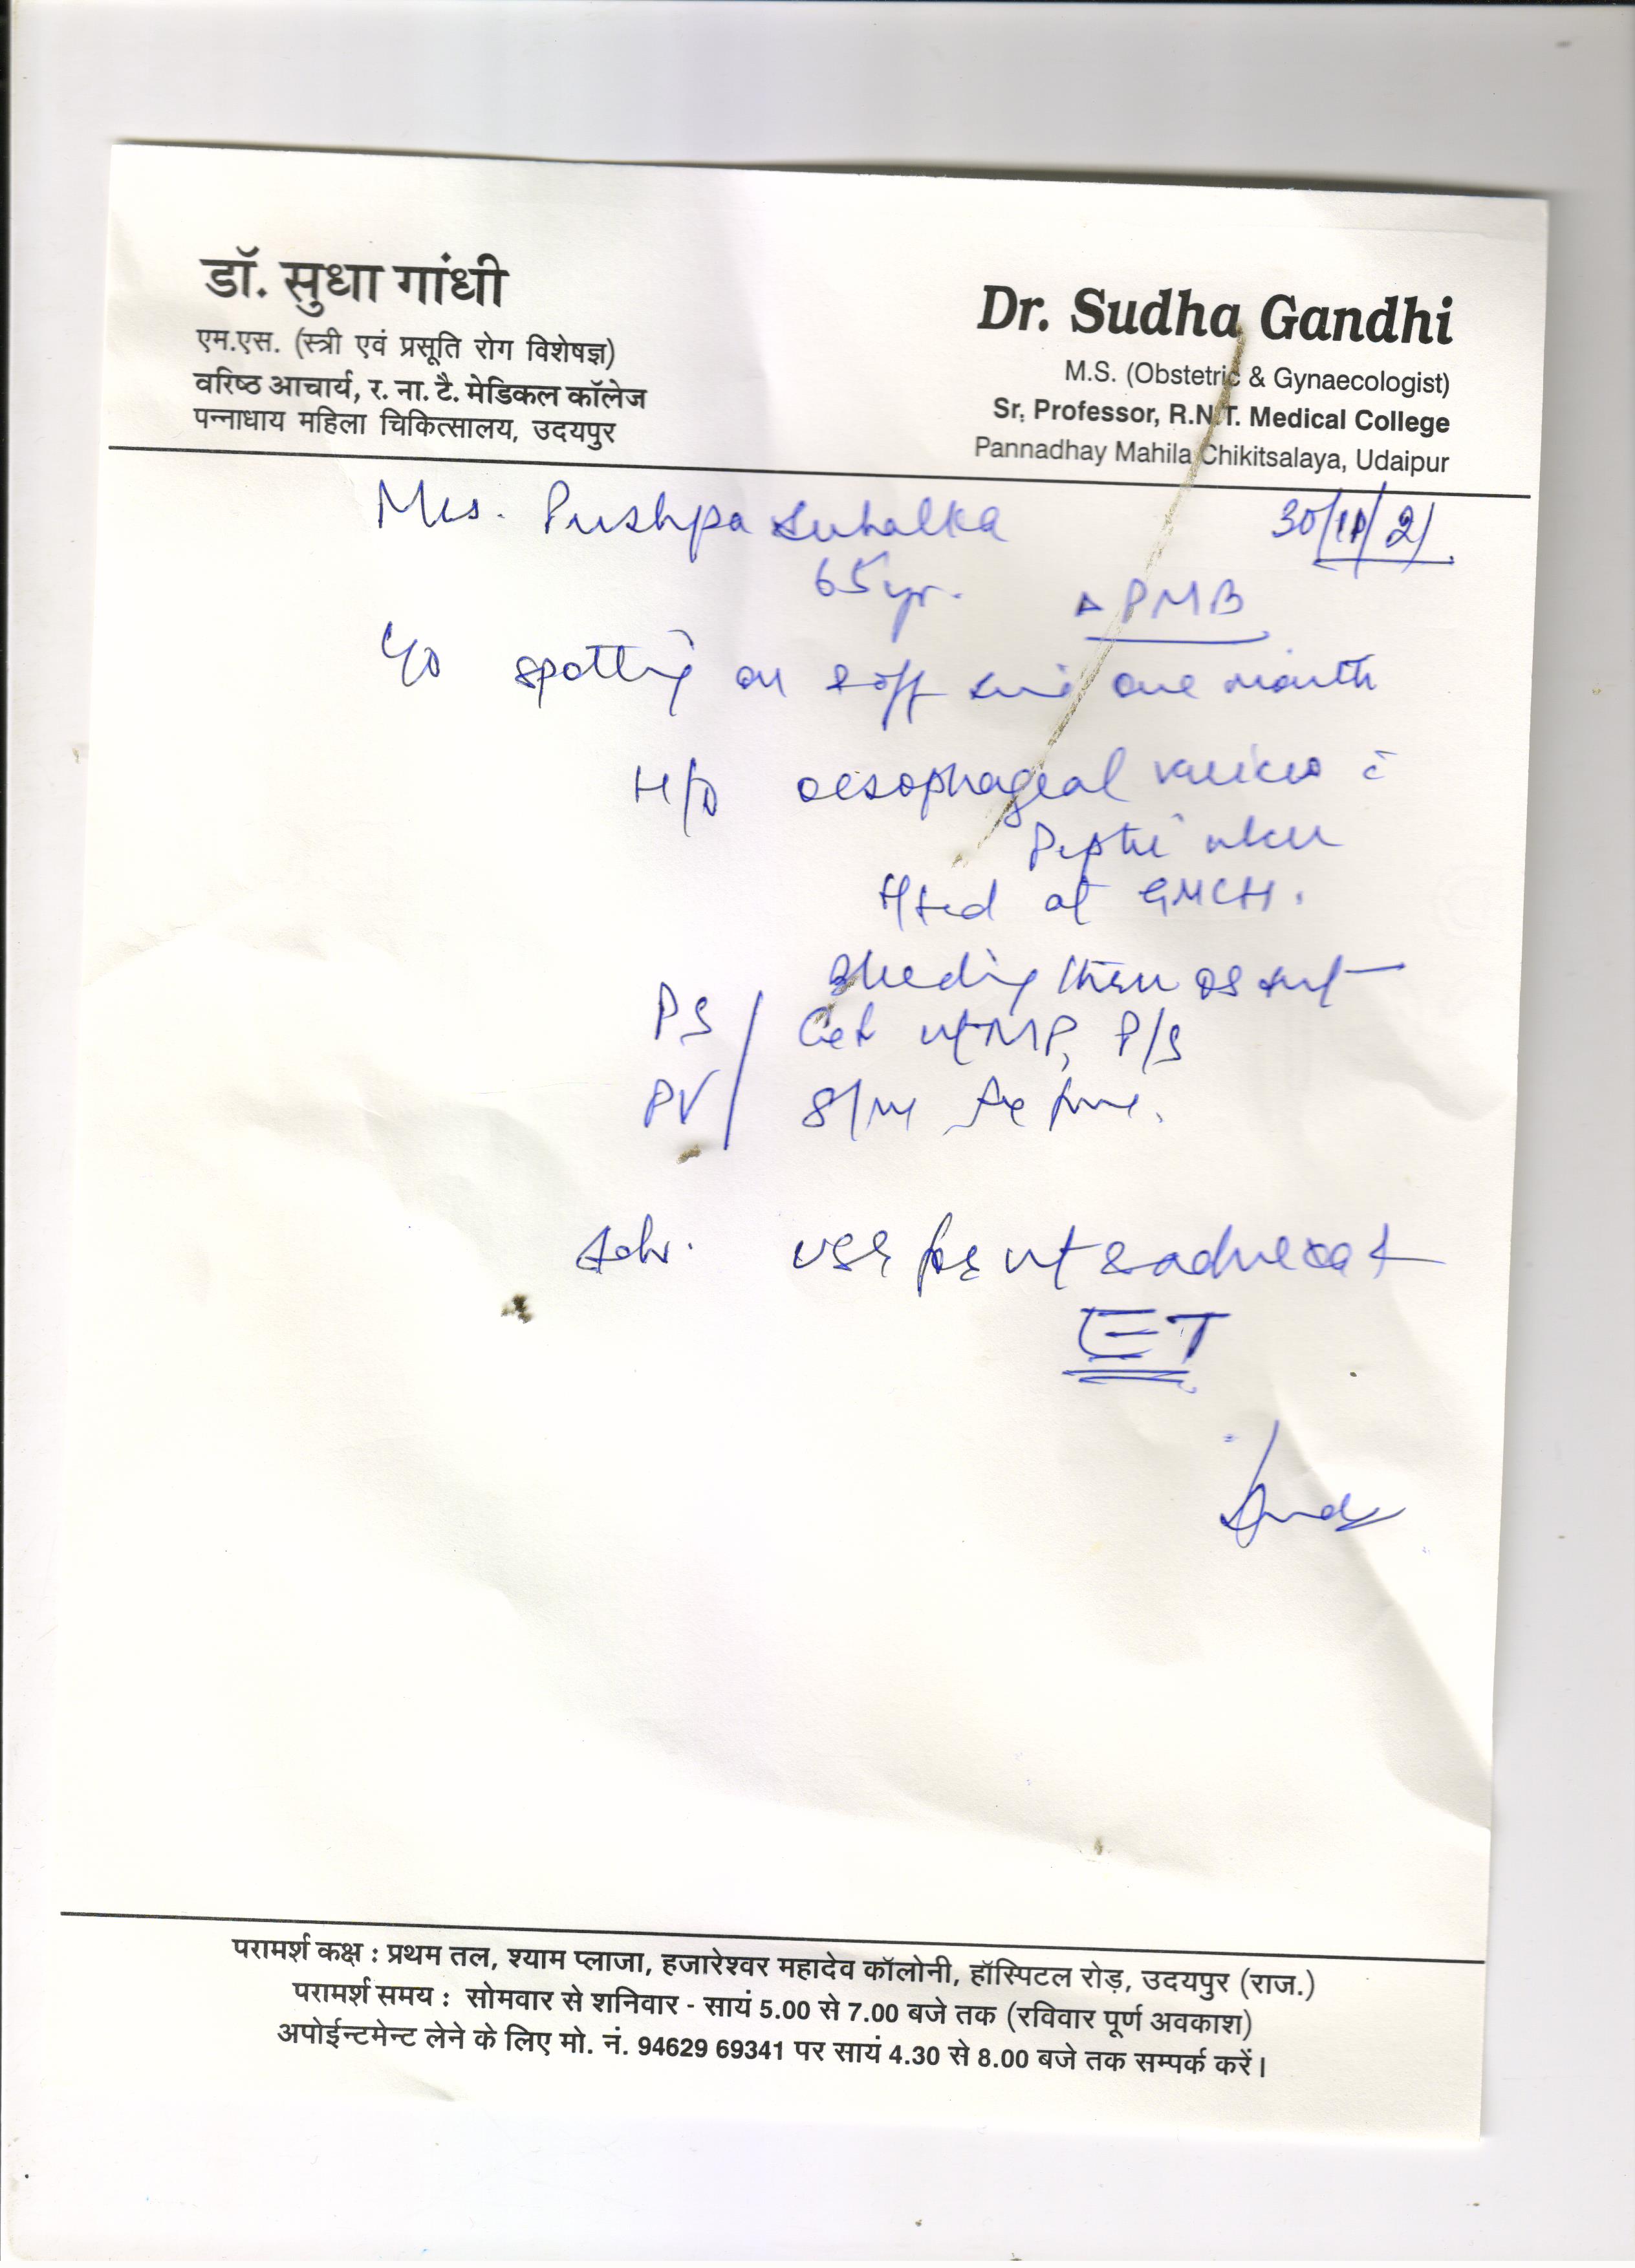 डॉ. सुधा गांधी
एम.एस. (स्त्री एवं प्रसूति रोग विशेषज्ञ)
वरिष्ठ आचार्य, र. ना. टै. मेडिकल कॉलेज
पन्नाधाय महिला चिकित्सालय, उदयपुर
Dr. Sudha Gandhi
M.S. (Obstetric & Gynaecologist)
Sr. Professor, R.N.T. Medical College
Pannadhay Mahila Chikitsalaya, Udaipur
Mrs. Pushpa Suhalka 30/11/21
65 yr. PMB
C/O spotting on & off since one month
H/O oesophageal varices c̄
Peptic ulcer
at GMCH.
Bleeding thru os
PS / Cx P/S
PV /
Adv. USG for ut & adnexa +
ET
परामर्श कक्ष : प्रथम तल, श्याम प्लाजा, हजारेश्वर महादेव कॉलोनी, हॉस्पिटल रोड़, उदयपुर (राज.)
परामर्श समय : सोमवार से शनिवार - सायं 5.00 से 7.00 बजे तक (रविवार पूर्ण अवकाश)
अपोईन्टमेन्ट लेने के लिए मो. नं. 94629 69341 पर सायं 4.30 से 8.00 बजे तक सम्पर्क करें।